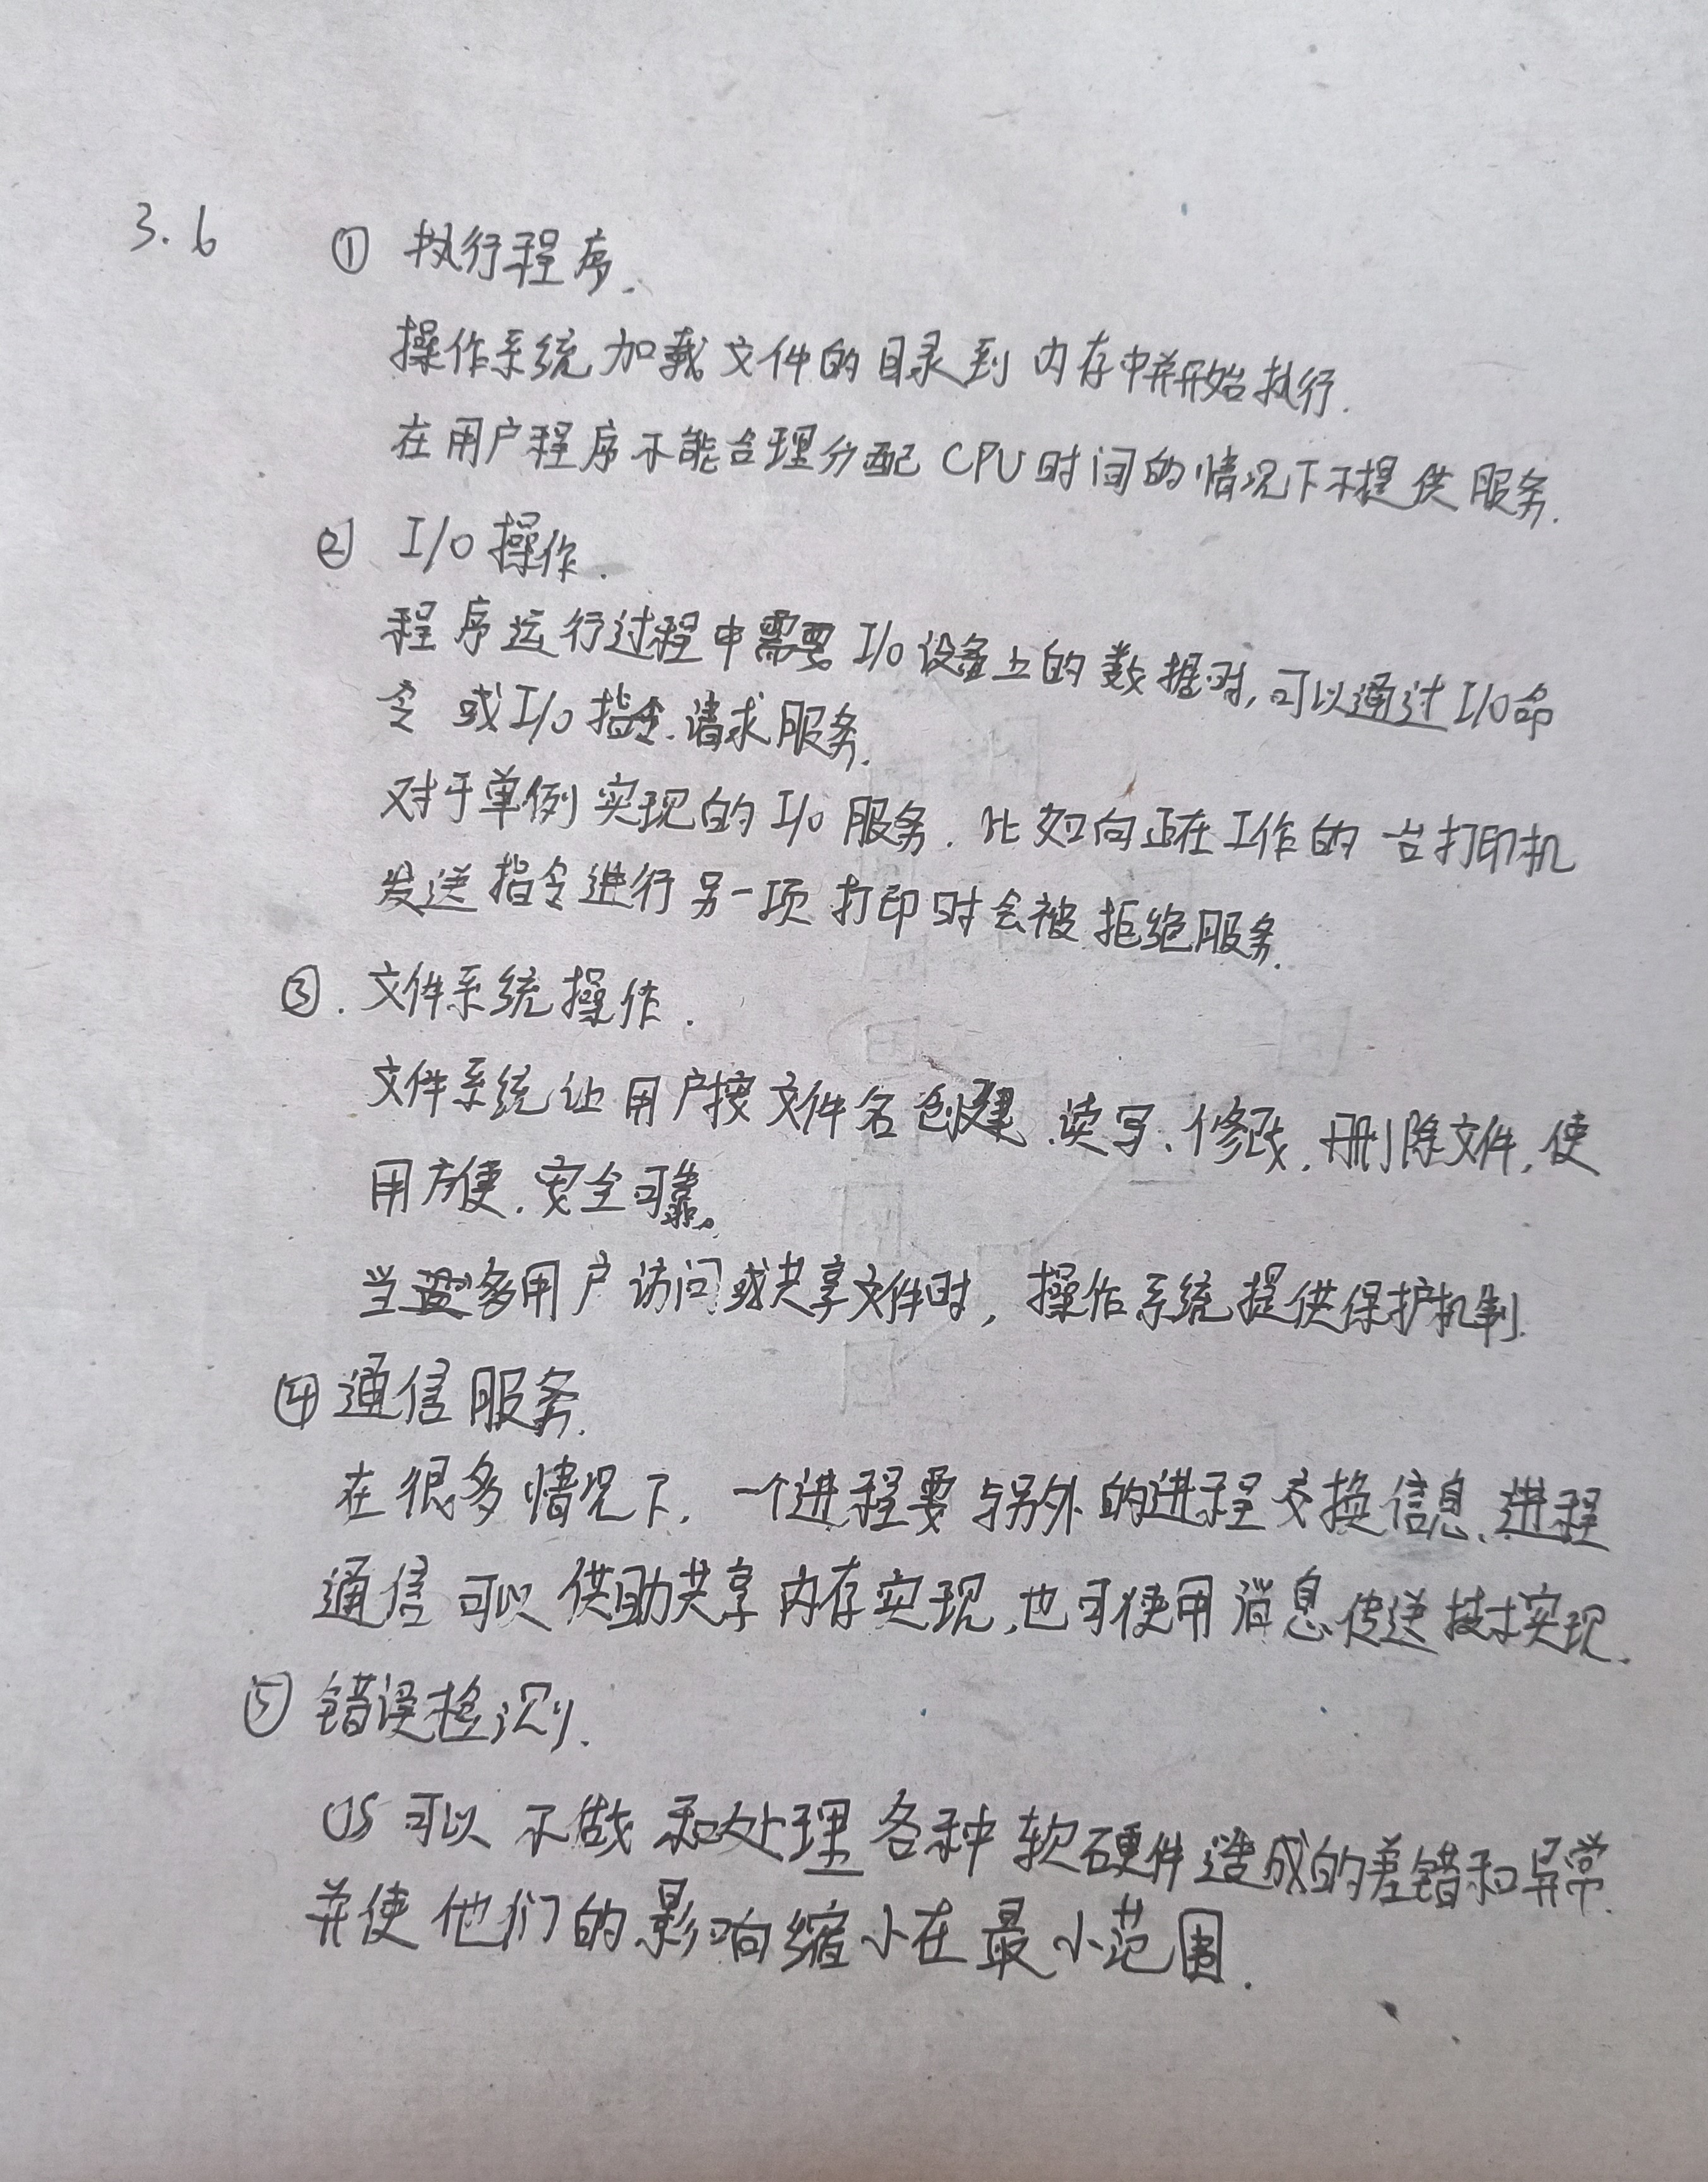 3.6 ① 执行程序.
操作系统加载文件的目录到内存中并开始执行.
在用户程序不能合理分配CPU时间的情况下不提供服务.
② I/O操作.
程序运行过程中需要I/O设备上的数据时,可以通过I/O命
令或I/O指令.请求服务.
对于单例实现的I/O服务.比如向正在工作的一台打印机
发送指令进行另一项打印时会被拒绝服务.
③.文件系统操作.
文件系统让用户按文件名创建.读写、修改,删除文件,使
用方便.安全可靠。
当多用户访问或共享文件时,操作系统提供保护机制.
④通信服务.
在很多情况下,一个进程要与另外的进程交换信息.进程
通信可以借助共享内存实现,也可使用消息传送技术实现.
⑤错误检测.
OS可以和处理各种软硬件造成的差错和异常.
并使他们的影响缩小在最小范围.